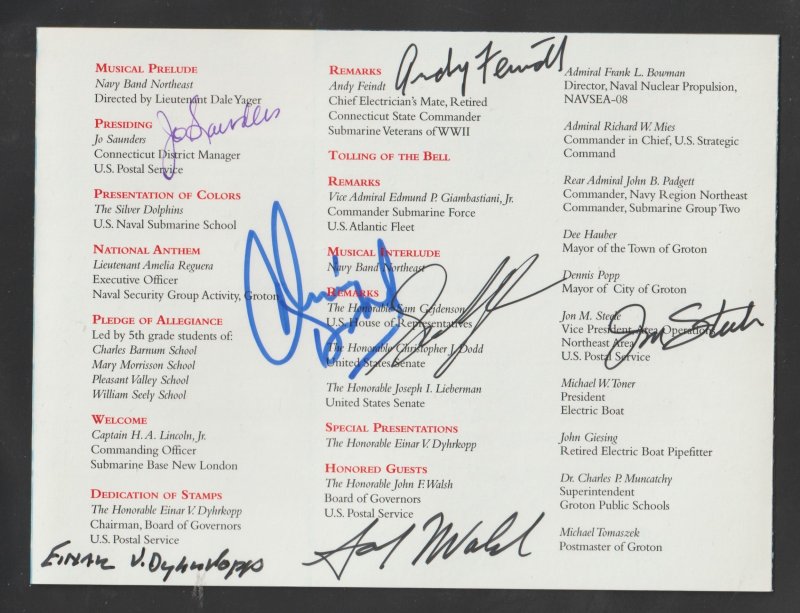 MUSICAL PRELUDE
Navy Band Northeast
Directed by Lieutenant Dale Yager
PRESIDING
Jo Saunders
Jo Saunders
Connecticut District Manager
U.S. Postal Service
PRESENTATION OF COLORS
The Silver Dolphins
U.S. Naval Submarine School
NATIONAL ANTHEM
Lieutenant Amelia Reguera
Executive Officer
Naval Security Group Activity, Groton
PLEDGE OF ALLEGIANCE
Led by 5th grade students of:
Charles Barnum School
Mary Morrisson School
Pleasant Valley School
William Seely School
WELCOME
Captain H. A. Lincoln, Jr.
Commanding Officer
Submarine Base New London
DEDICATION OF STAMPS
The Honorable Einar V. Dyhrkopp
Chairman, Board of Governors
U.S. Postal Service
EINAR V. Dyhrkopp
REMARKS
Andy Feindt
Andy Feindt
Chief Electrician's Mate, Retired
Connecticut State Commander
Submarine Veterans of WWII
TOLLING OF THE BELL
REMARKS
Vice Admiral Edmund P. Giambastiani, Jr.
Commander Submarine Force
U.S. Atlantic Fleet
MUSICAL INTERLUDE
Navy Band Northeast
REMARKS
The Honorable Sam Gejdenson
U.S. House of Representatives
The Honorable Christopher J. Dodd
United States Senate
The Honorable Joseph I. Lieberman
United States Senate
SPECIAL PRESENTATIONS
The Honorable Einar V. Dyhrkopp
HONORED GUESTS
The Honorable John F. Walsh
Board of Governors
U.S. Postal Service
Walsh
Admiral Frank L. Bowman
Director, Naval Nuclear Propulsion,
NAVSEA-08
Admiral Richard W. Mies
Commander in Chief, U.S. Strategic
Command
Rear Admiral John B. Padgett
Commander, Navy Region Northeast
Commander, Submarine Group Two
Dee Hauber
Mayor of the Town of Groton
Dennis Popp
Mayor of City of Groton
Jon M. Steele
Vice President Area Operations
Northeast Area
U.S. Postal Service
Jon Steele
Michael W. Toner
President
Electric Boat
John Giesing
Retired Electric Boat Pipefitter
Dr. Charles P. Muncatchy
Superintendent
Groton Public Schools
Michael Tomaszek
Postmaster of Groton